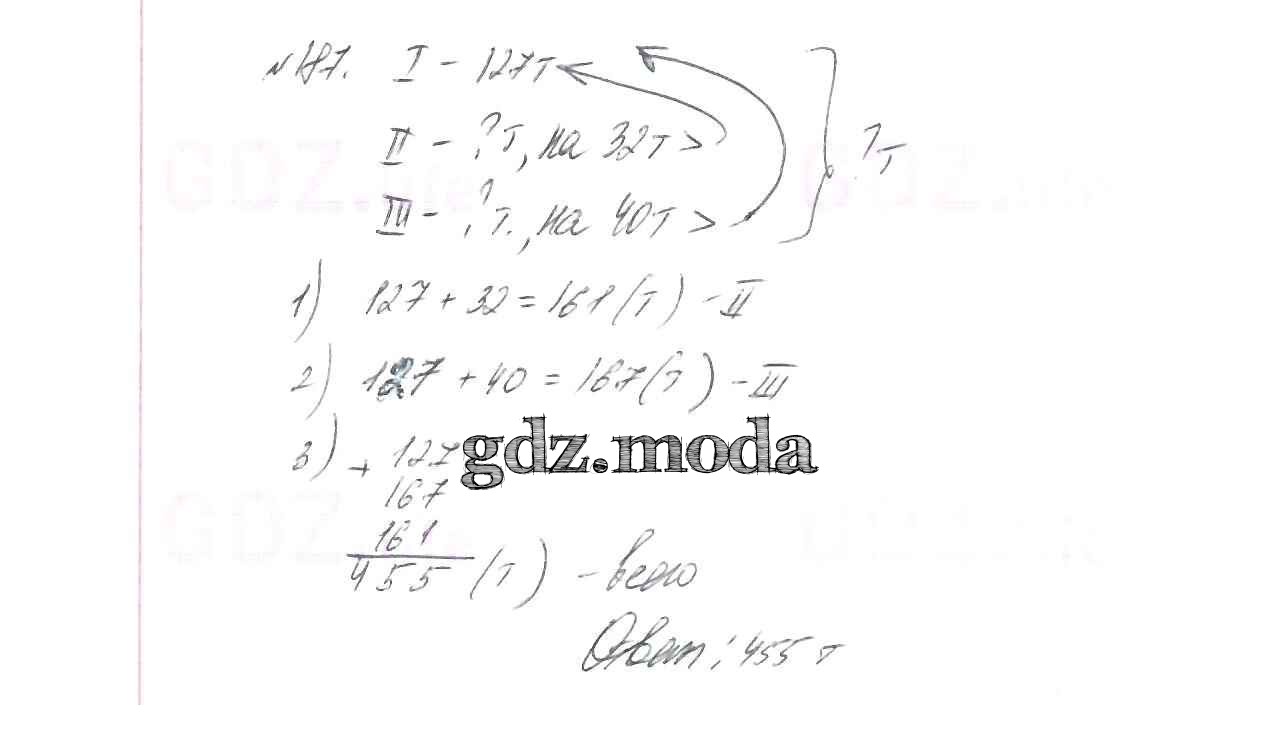 №187. I - 127т
II - ?т, на 32т >
III - ?т., на 40т >
?т
1) 127 + 32 = 161 (т) - II
2) 127 + 40 = 167 (т) - III
3) + 127
167
161
455 (т) - всего
Ответ: 455 т
gdz.moda
GDZ
GDZ
GDZ